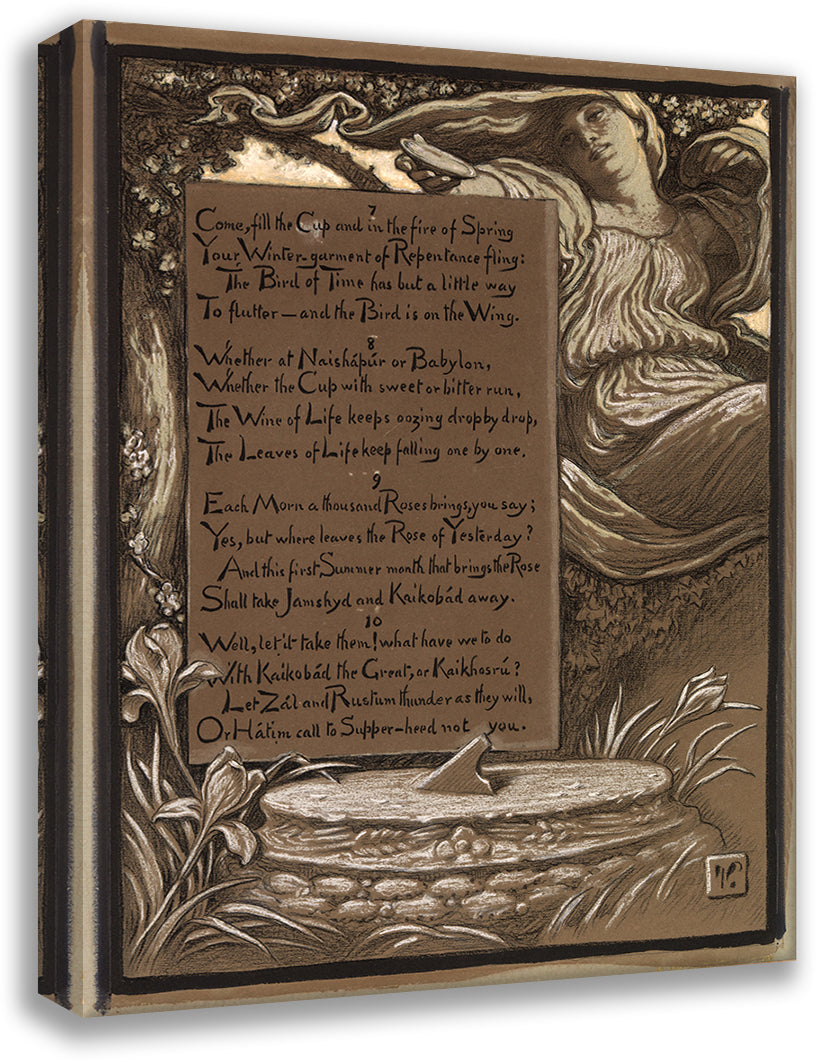 7
Come, fill the Cup and in the fire of Spring
Your Winter-garment of Repentance fling:
The Bird of Time has but a little way
To flutter — and the Bird is on the Wing.
8
Whether at Naishápúr or Babylon,
Whether the Cup with sweet or bitter run,
The Wine of Life keeps oozing drop by drop,
The Leaves of Life keep falling one by one.
9
Each Morn a thousand Roses brings, you say;
Yes, but where leaves the Rose of Yesterday?
And this first Summer month that brings the Rose
Shall take Jamshyd and Kaikobád away.
10
Well, let it take them! what have we to do
With Kaikobád the Great, or Kaikhosrú?
Let Zál and Rustum thunder as they will,
Or Hátim call to Supper—heed not you.